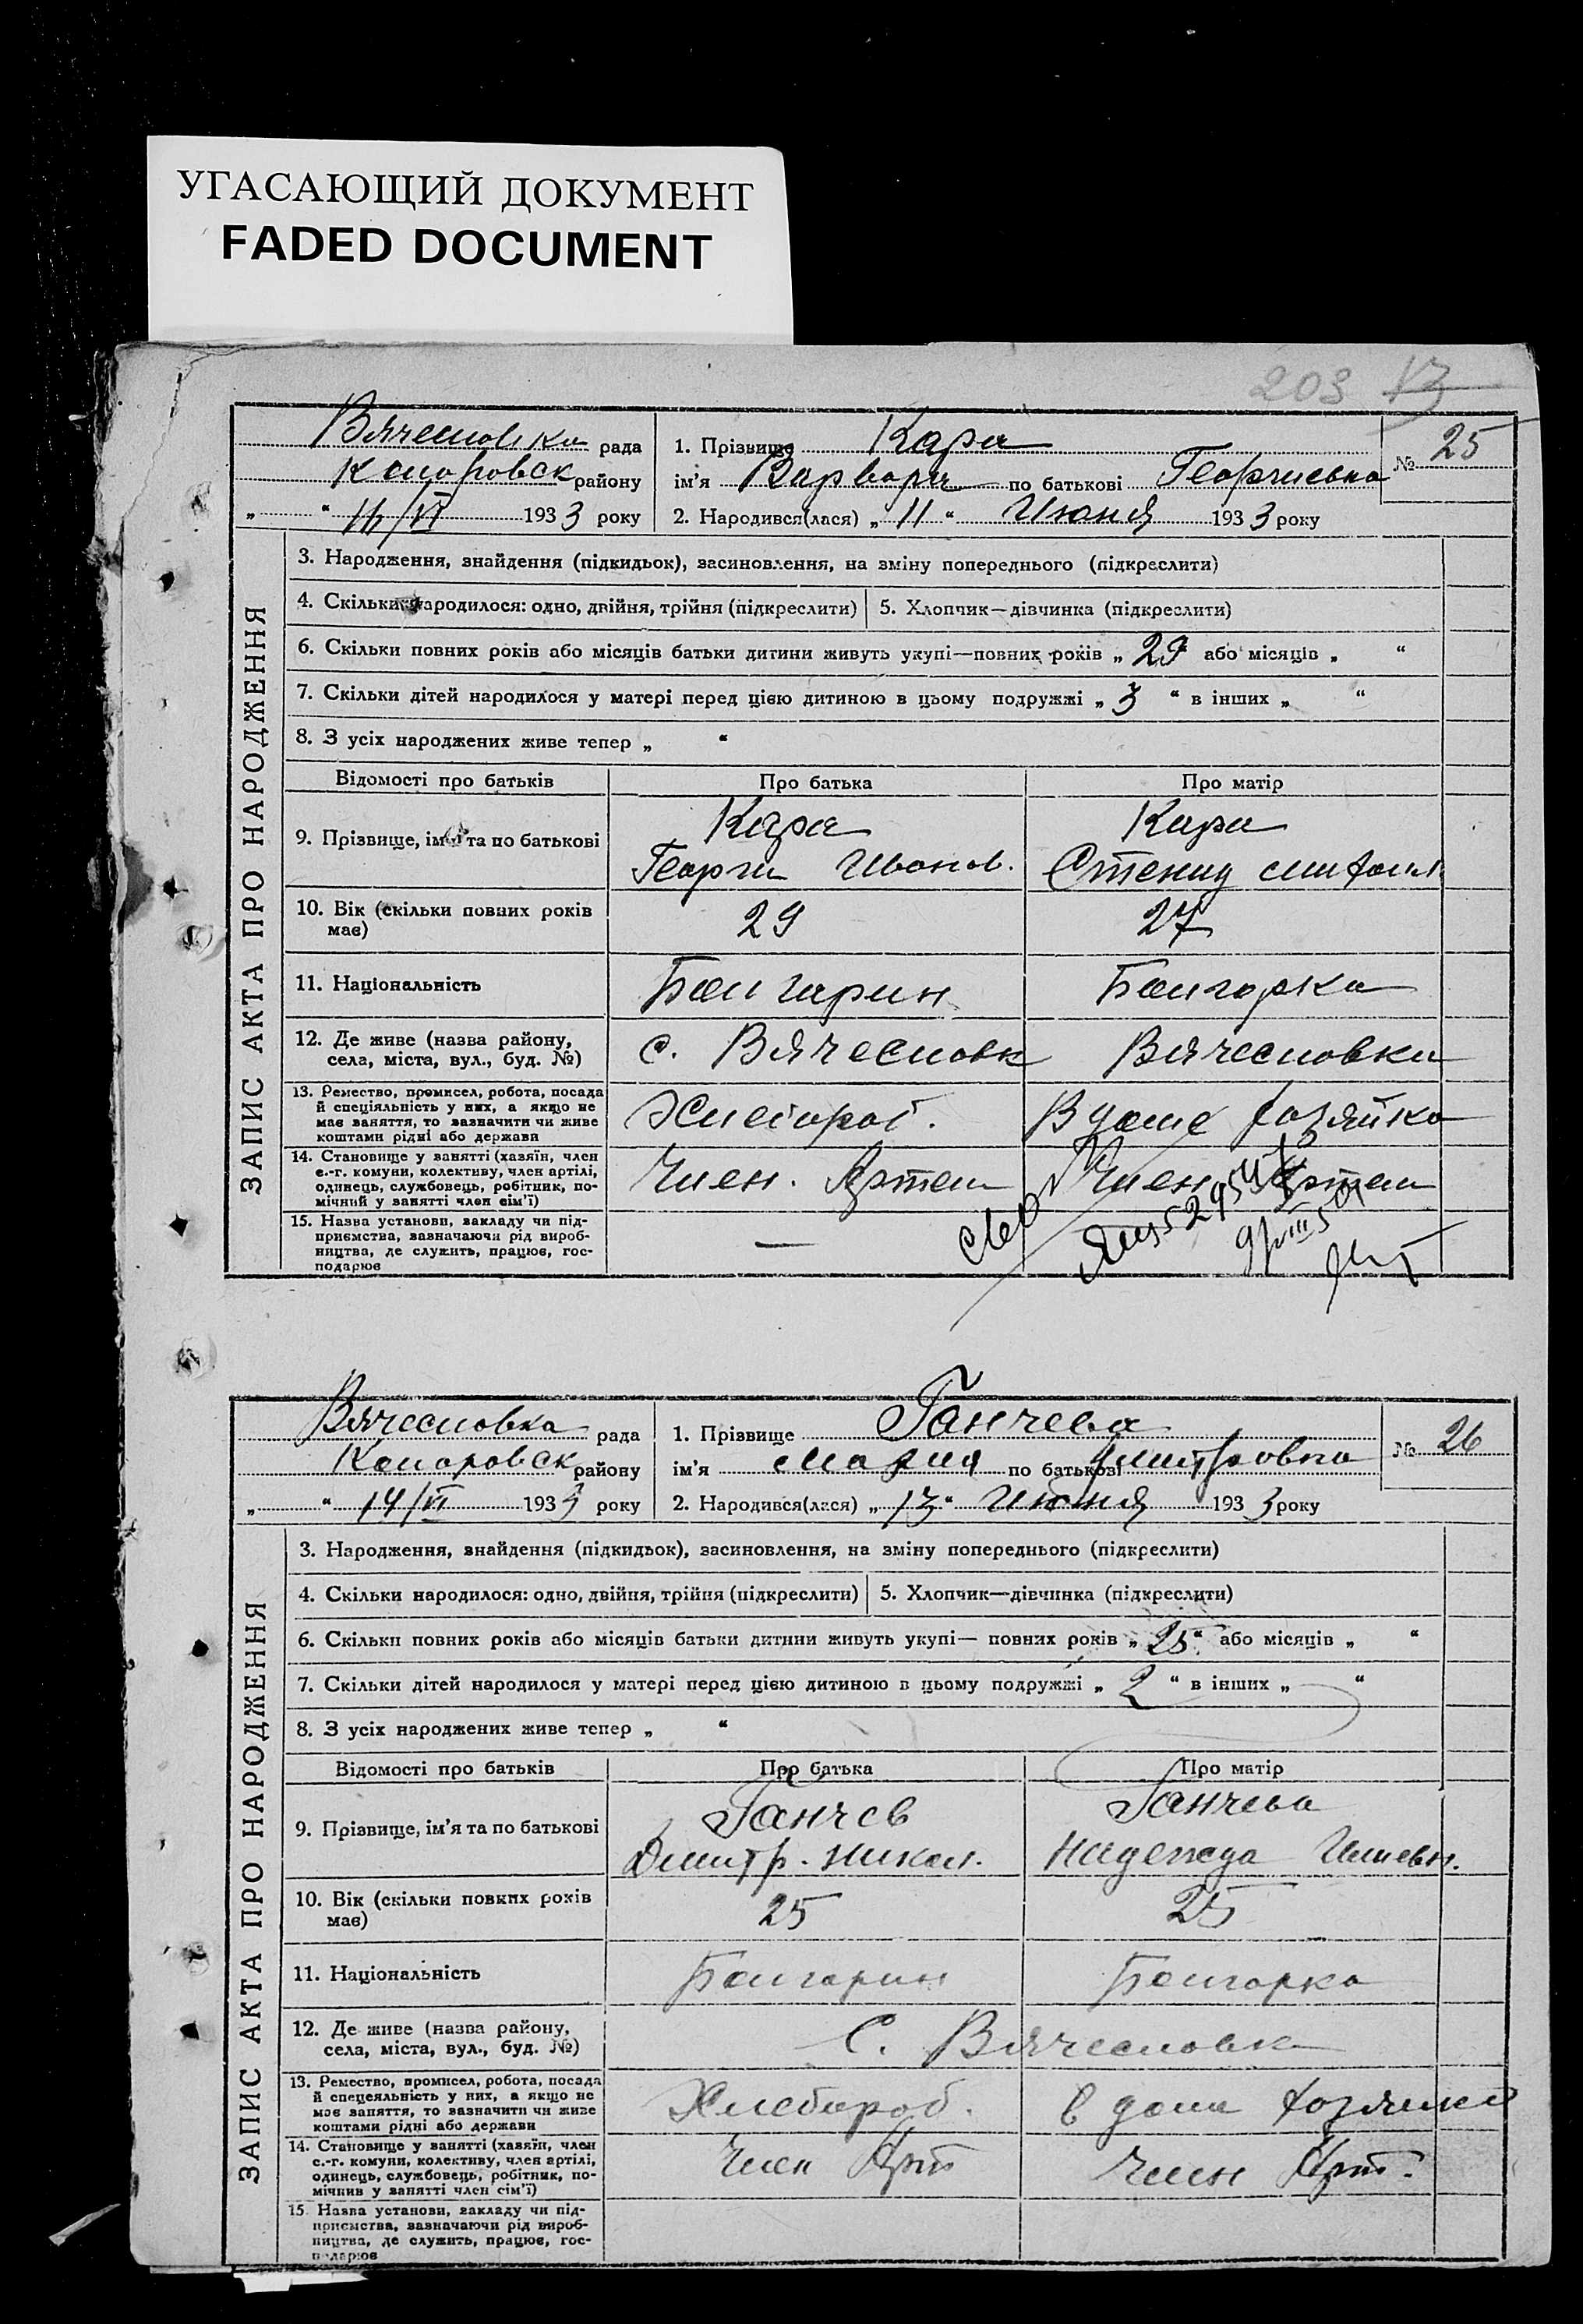 УГАСАЮЩИЙ ДОКУМЕНТ
FADED DOCUMENT
203 13
ЗАПИС АКТА ПРО НАРОДЖЕННЯ
Вячесловка рада
районy
„ “ 14/VI 1933 року
1. Прізвище Кара
ім'я Варвара по батькові Георгиевна
№ 25
2. Народився(лася) „ 11 “ Июня 1933 року
3. Народження, знайдення (підкидьок), засиновлення, на зміну попереднього (підкреслити)
4. Скільки народилося: одно, двійня, трійня (підкреслити) 5. Хлопчик—дівчинка (підкреслити)
6. Скільки повних років або місяців батьки дитини живуть укупі—повних років „ 29 або місяців „ “
7. Скільки дітей народилося у матері перед цією дитиною в цьому подружжі „ 3 “ в інших „ “
8. З усіх народжених живе тепер „ “
Відомості про батьків Про батька Про матір
9. Прізвище, ім'я та по батькові Кара Кара
Георги Иванов.
10. Вік (скільки повних років має) 29 27
11. Національність Болгарин Болгорка
12. Де живе (назва району, села, міста, вул., буд. №) с. Вячесловк Вячесловка
13. Ремество, промисел, робота, посада й спеціяльність у них, а якщо не має заняття, то зазначити чи живе коштами рідні або держави Хлебороб. В доме хозяйка
14. Становище у занятті (хазяїн, член с.-г. комуни, колективу, член артілі, одинець, службовець, робітник, помічний у занятті член сім'ї) Член. Артели Член Артели
15. Назва установи, закладу чи підприємства, зазначаючи рід виробництва, де служить, працює, господарює —
ЗАПИС АКТА ПРО НАРОДЖЕННЯ
Вячесловка рада
району
„ “ 14/VI 1933 року
1. Прізвище Ганчева
ім'я Мария по батькові Дмитровна
№ 26
2. Народився(лася) „ 13 “ Июня 1933 року
3. Народження, знайдення (підкидьок), засиновлення, на зміну попереднього (підкреслити)
4. Скільки народилося: одно, двійня, трійня (підкреслити) 5. Хлопчик—дівчинка (підкреслити)
6. Скільки повних років або місяців батьки дитини живуть укупі— повних років „ 25 “ або місяців „ “
7. Скільки дітей народилося у матері перед цією дитиною в цьому подружжі „ 2 “ в інших „ “
8. З усіх народжених живе тепер „ “
Відомості про батьків Про батька Про матір
9. Прізвище, ім'я та по батькові Ганчев Ганчева
Дмитр. Никол. Надежда Ильевн.
10. Вік (скільки повних років має) 25 25
11. Національність Болгарин Болгорка
12. Де живе (назва району, села, міста, вул., буд. №) С. Вячесловк
13. Ремество, промисел, робота, посада й спецеяльність у них, а якщо не має заняття, то зазначити чи живе коштами рідні або держави Хлебороб. в доми
14. Становище у занятті (хазяїн, член с.-г. комуни, колективу, член артілі, одинець, службовець, робітник, помічник у занятті член сім'ї) Член Арт Член Арт.
15. Назва установи, закладу чи підприємства, зазначаючи рід виробництва, де служить, працює, господарює